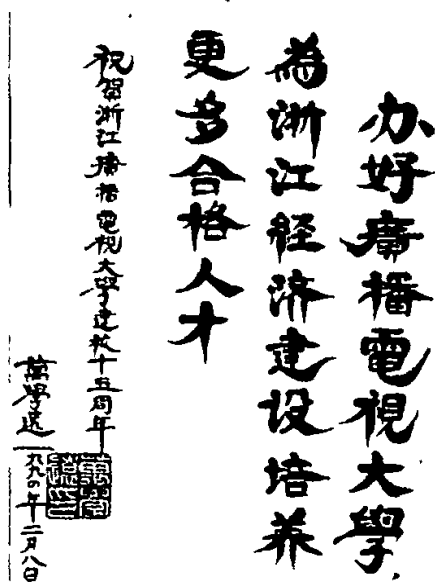 办好廣播電視大學，
為浙江経济建设培养
更多合格人才
祝賀浙江廣播電視大學建校十五周年
萬學遠
一九九四年二月八日